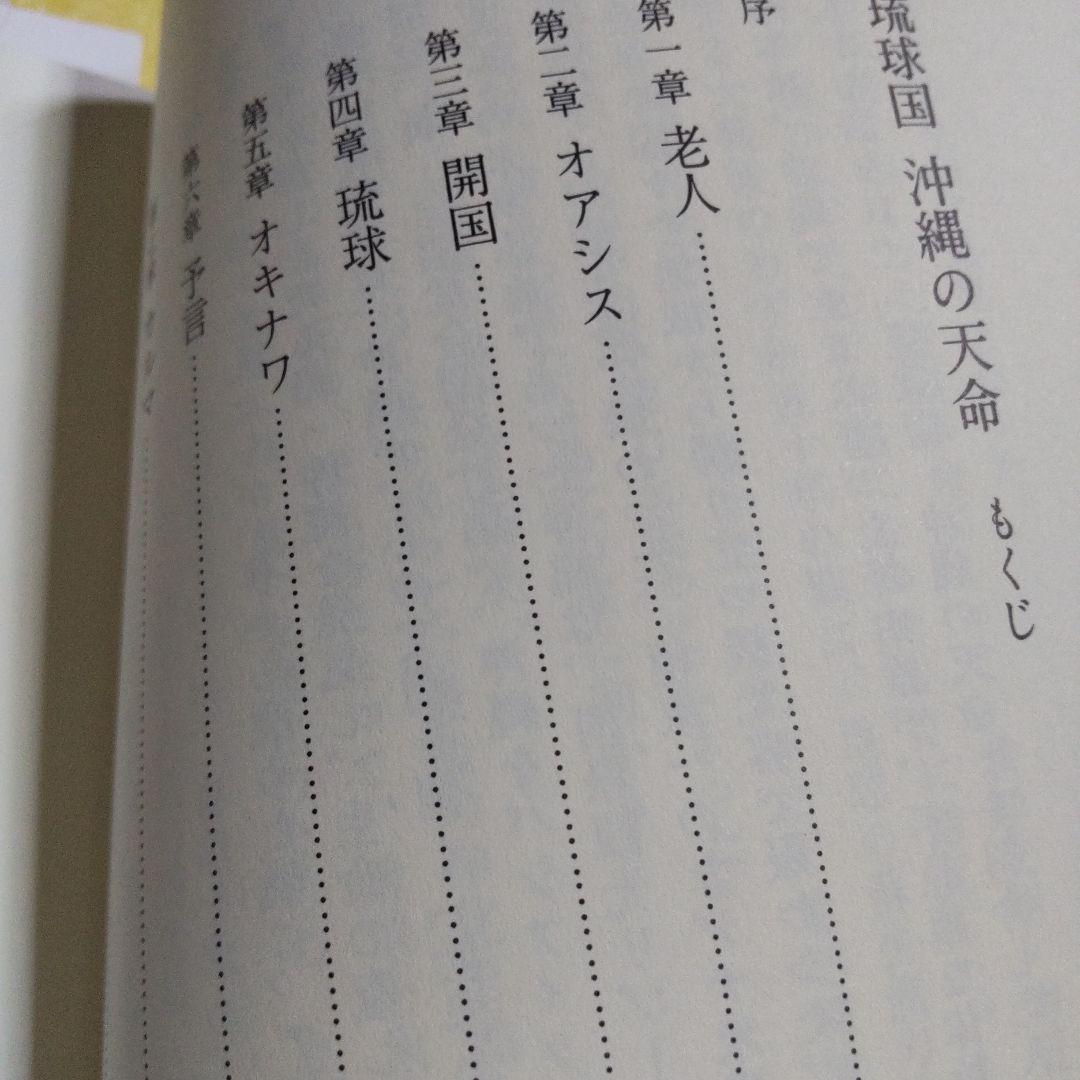 琉球国 沖縄の天命 もくじ
序
第一章 老人
第二章 オアシス
第三章 開国
第四章 琉球
第五章 オキナワ
第六章 予言